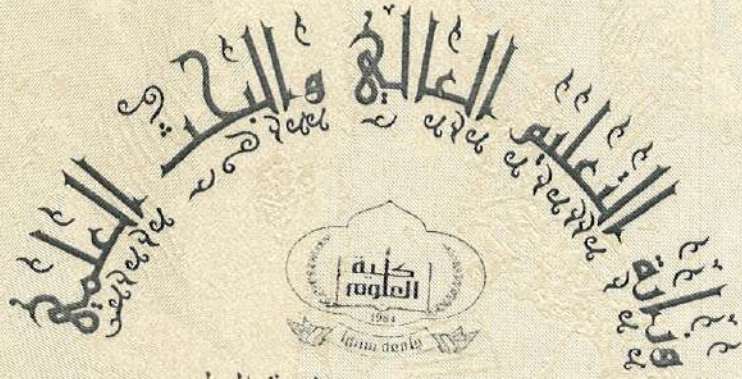 وزارة التعليم العالي والبحث العلمي
كلية
العلوم
1984